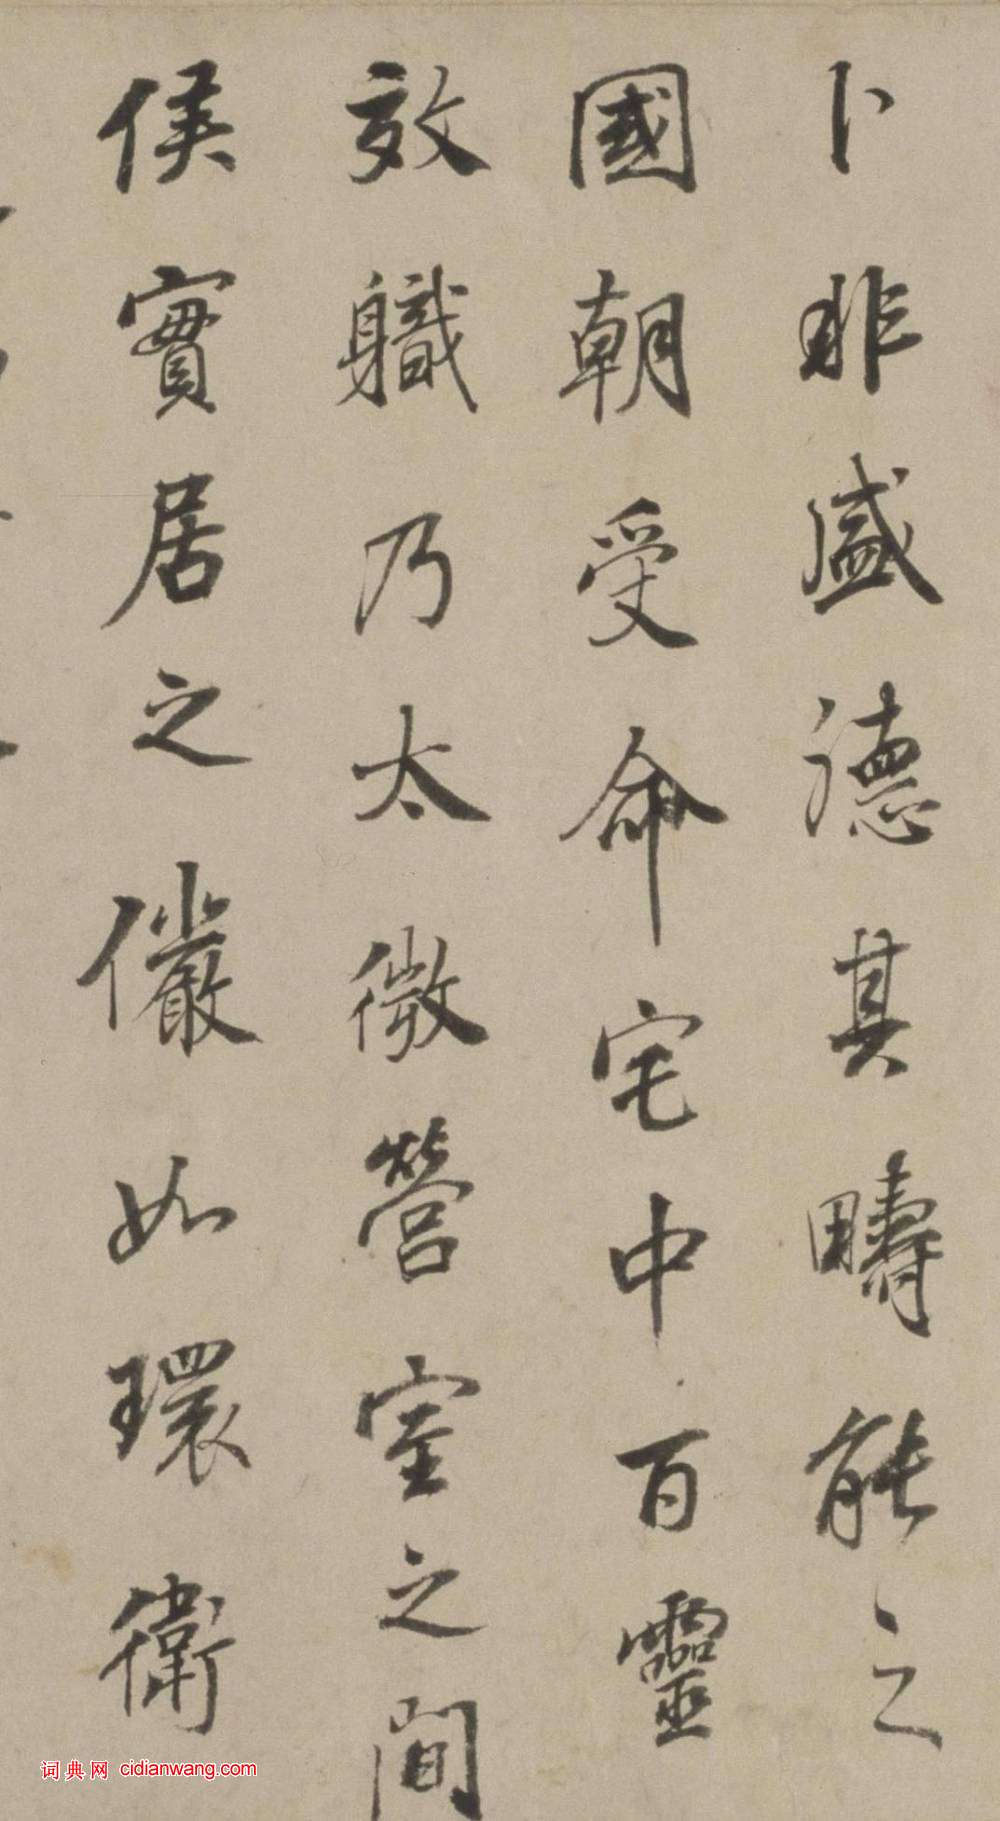 卜非盛德其疇能之
國朝受命宅中百靈
效職乃太微營室之間
侯實居之儼如環衛
词典网 cidianwang.com